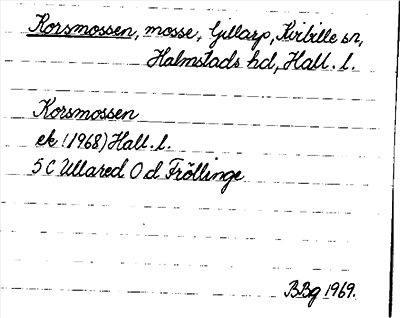 Korsmossen, mosse, Gillarp, Kvibille sn,
Halmstads hd, Hall. l.
Korsmossen
ek (1968) Hall. l.
5 C Ullared O d Fröllinge
BBg 1969.